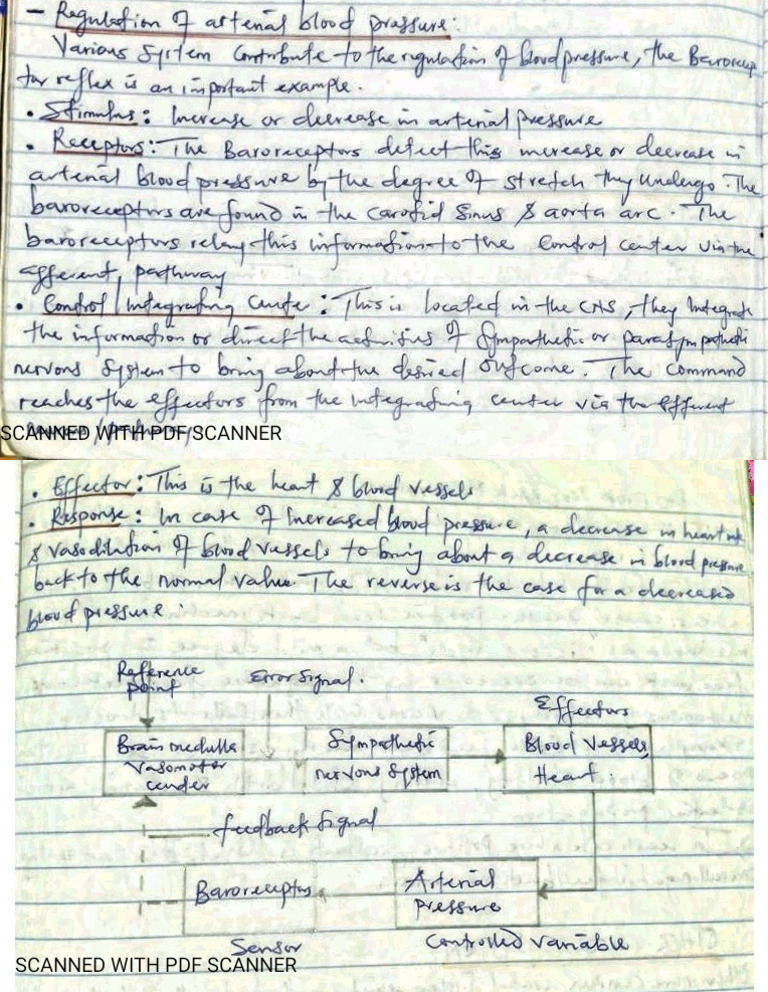 - Regulation of arterial blood pressure:
Various System Contribute to the regulation of blood pressure, the Barorecep
tor reflex is an important example.
• Stimulus: Increase or decrease in arterial pressure
• Receptors: The Baroreceptors detect this increase or decrease in
arterial blood pressure by the degree of stretch they undergo. The
baroreceptors are found in the carotid sinus & aorta arc. The
baroreceptors relay this information to the Control center via the
afferent pathway
• Control/Integrating Center: This is located in the CNS, they Integrate
the information or direct the activities of Sympathetic or parasympathetic
nervous System to bring about the desired outcome. The command
reaches the effectors from the integrating center via the efferent
SCANNED WITH PDF SCANNER
• Effector: This is the heart & blood vessels
• Response: In case of Increased blood pressure, a decrease in heart rate
& vasodilation of blood vessels to bring about a decrease in blood pressure
back to the normal value. The reverse is the case for a decreased
blood pressure.
Reference
point
Error Signal.
Effectors
Brain medulla
Vasomotor
center
Sympathetic
nervous system
Blood Vessels,
Heart.
feedback Signal
Baroreceptors
Arterial
pressure
Sensor
Controlled variable
SCANNED WITH PDF SCANNER